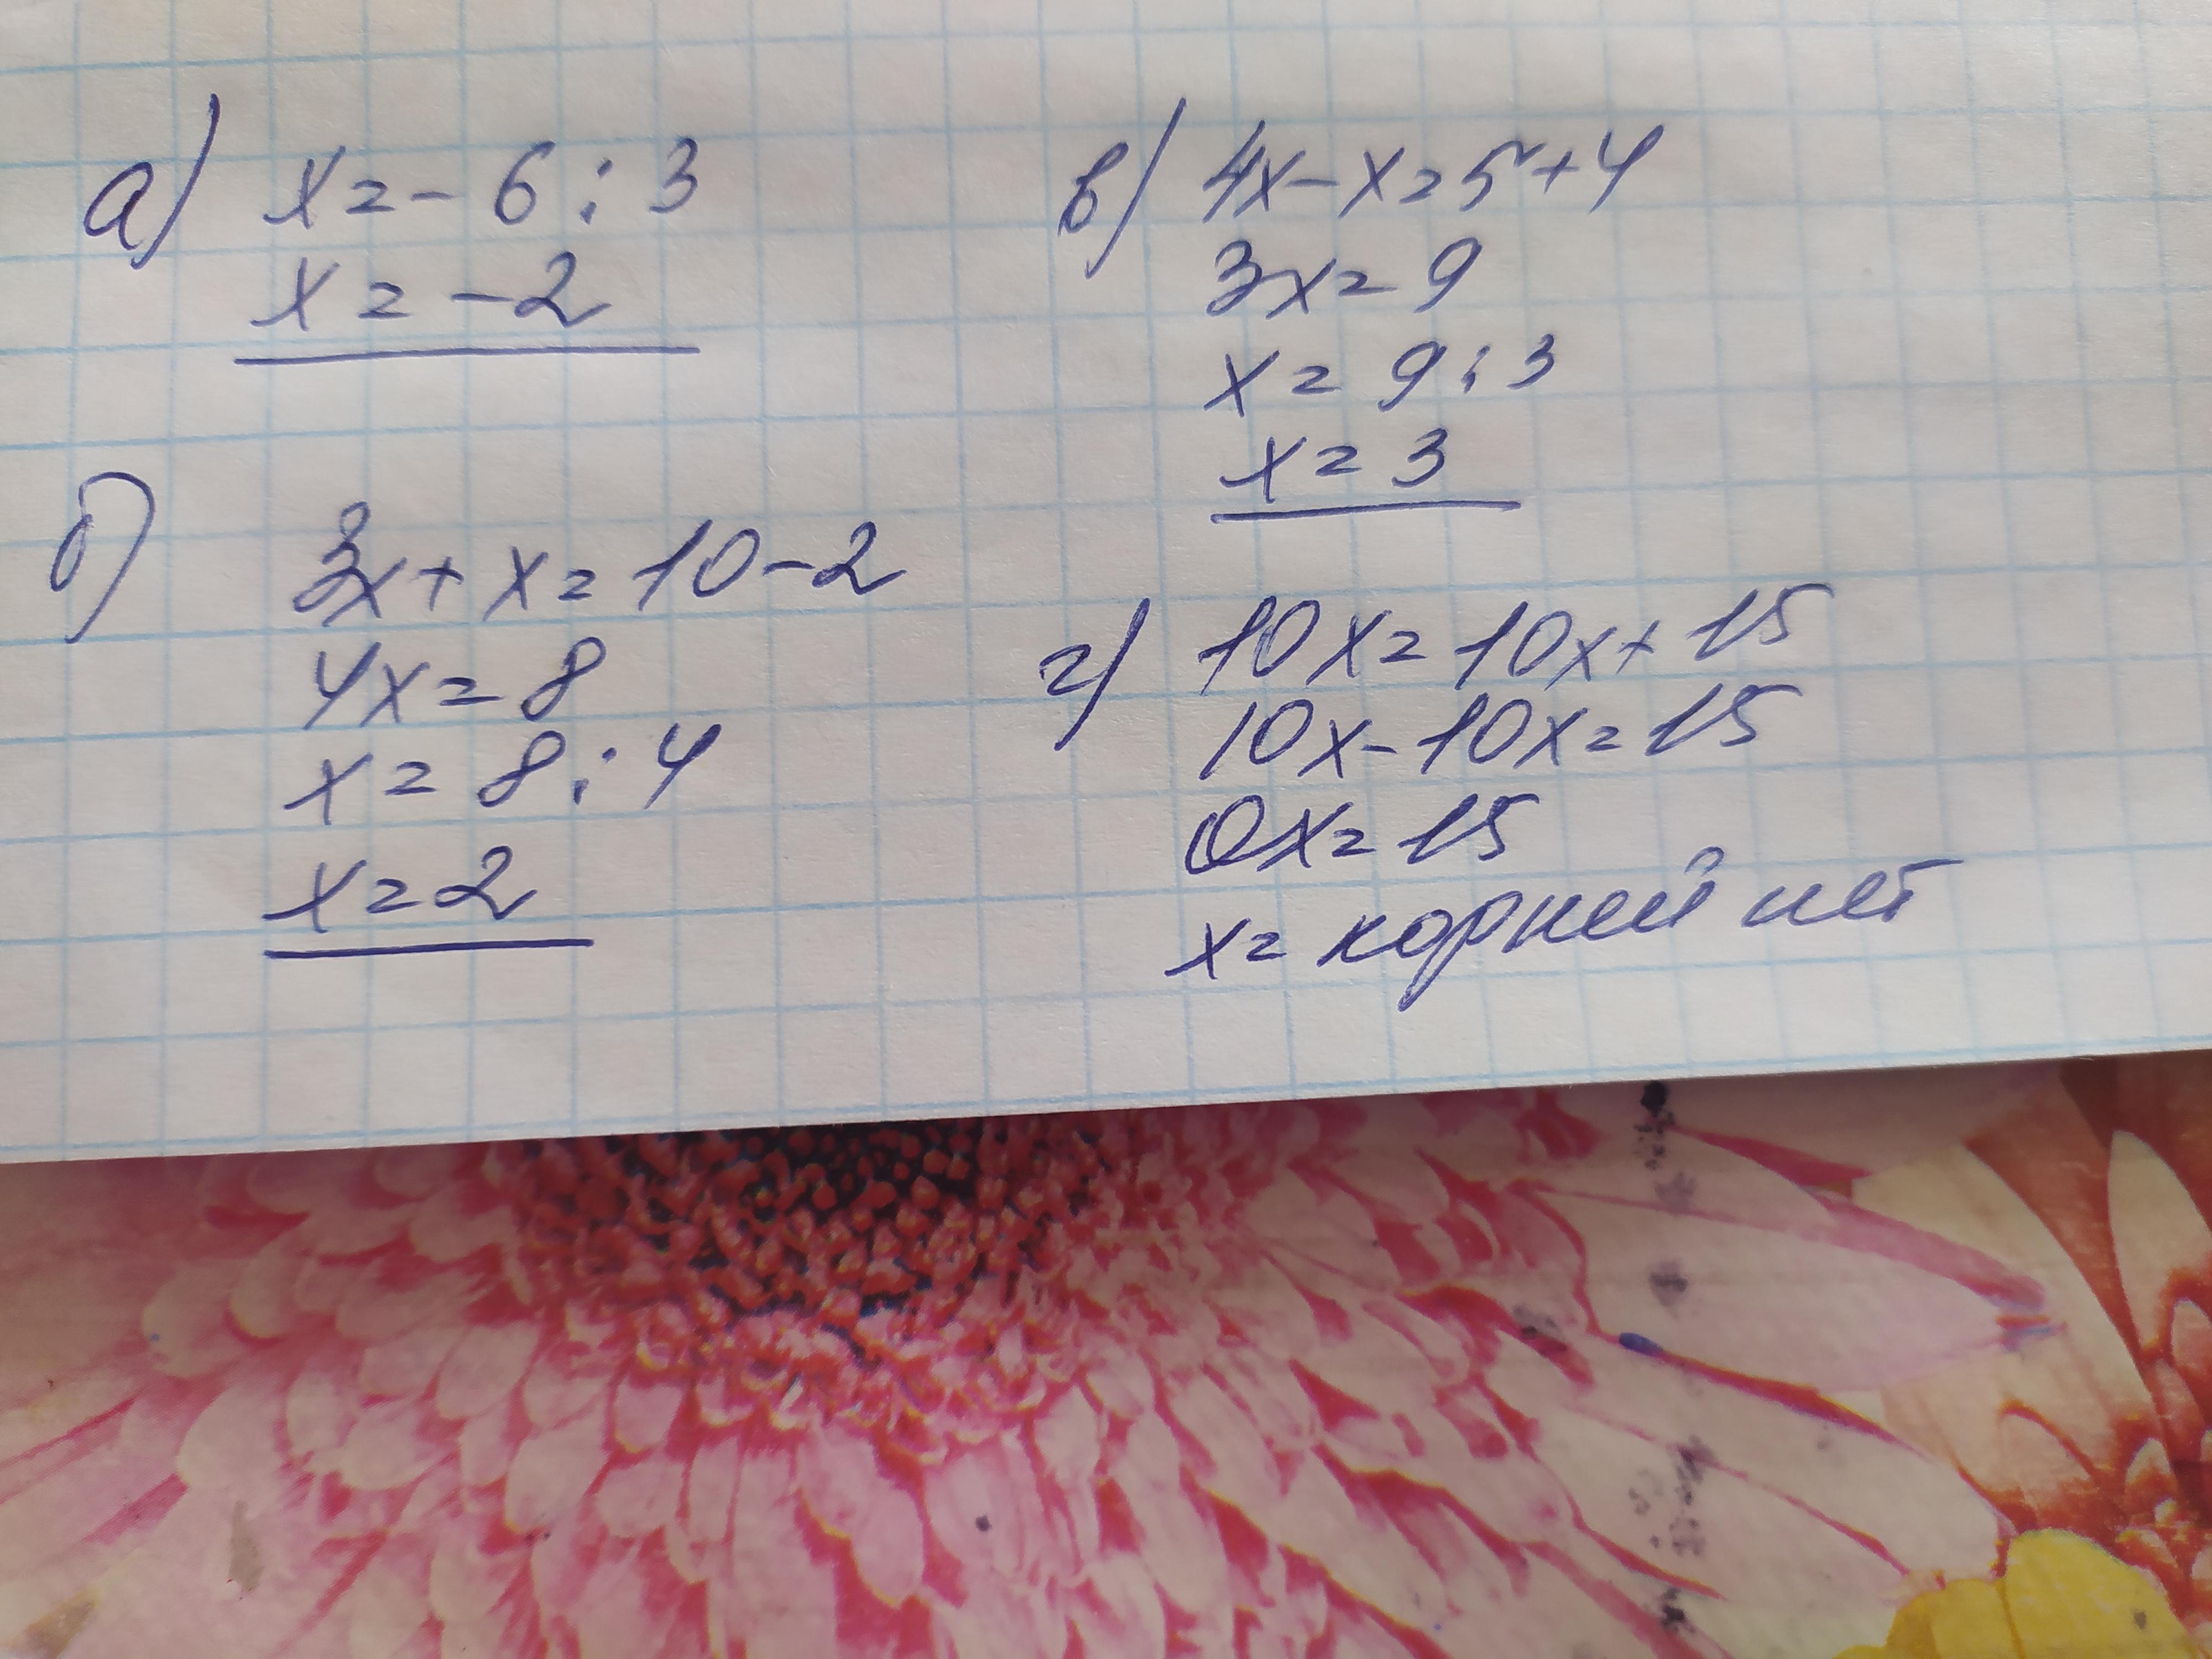 а) x = - 6 : 3
x = - 2
б) 3x + x = 10 - 2
4x = 8
x = 8 : 4
x = 2
в) 4x - x = 5 + 4
3x = 9
x = 9 : 3
x = 3
г) 10x = 10x + 15
10x - 10x = 15
0x = 15
x = корней нет